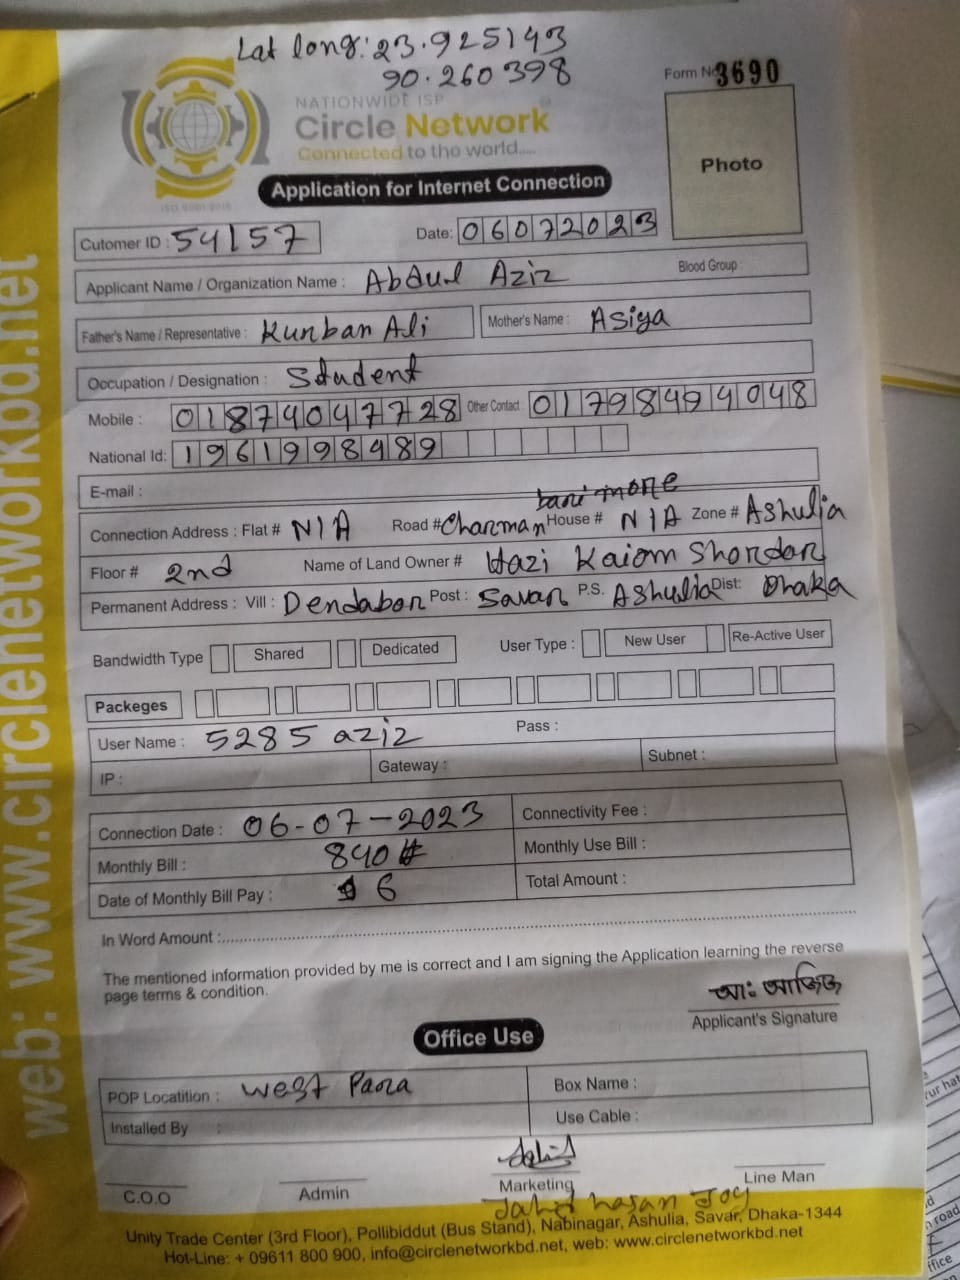 Lat long: 23.925143
90.260398
Form No 3690
NATIONWIDE ISP
Circle Network
Connected to the world.....
ISO 9001:2015
Photo
Application for Internet Connection
Cutomer ID : 54157 Date: 06072023
Applicant Name / Organization Name : Abdul Aziz Blood Group :
Father's Name / Representative : Kunban Ali Mother's Name : Asiya
Occupation / Designation : Student
Mobile : 01874047728 Other Contact : 01798494048
National Id: 1961998989
E-mail :
bari more
Connection Address : Flat # N/A Road # Charman House # N/A Zone # Ashulia
Floor # 2nd Name of Land Owner # Hazi Kaiom Shordar
Permanent Address : Vill : Dendabor Post : Savar P.S. Ashulia Dist: Dhaka
Bandwidth Type Shared Dedicated User Type : New User Re-Active User
Packeges
User Name : 5285 aziz Pass :
IP : Gateway : Subnet :
Connection Date : 06-07-2023 Connectivity Fee :
Monthly Bill : 840 Monthly Use Bill :
Date of Monthly Bill Pay : 6 Total Amount :
In Word Amount :
The mentioned information provided by me is correct and I am signing the Application learning the reverse
page terms & condition.
আঃ আজিজ
Applicant's Signature
Office Use
POP Locatition : West Para Box Name :
Installed By : Use Cable :
C.O.O Admin Marketing Line Man
Jahid hasan Joy
Unity Trade Center (3rd Floor), Pollibiddut (Bus Stand), Nabinagar, Ashulia, Savar, Dhaka-1344
Hot-Line: + 09611 800 900, info@circlenetworkbd.net, web: www.circlenetworkbd.net
web: www.circlenetworkbd.net